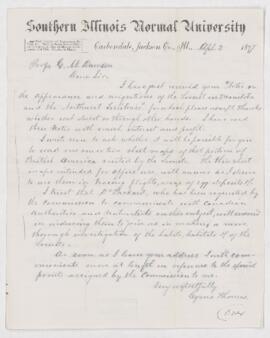 Southern Illinois Normal University
Carbondale, Jackson Co., Ill., Sept. 2 1877
Prof. G. M. Dawson
Dear Sir
I have just received your "Notes on
the appearance and migrations of the Locust in Manitoba
and the Northwest Territories" for which please accept thanks
whether sent direct or through other hands. I have read
these Notes with much interest and profit.
I wish now to ask whether it will be possible for you
to send me an outline sketch map of that portion of
British America visited by the Locusts. If this sketch
map intended for official use, will answer as I desire
to use it showing
I trust that Dr Packard, who has been requested by
the Commission to communicate with Canadian
Authorities and
in inducing them to join us in making a more
thorough investigation of the habits, habitats &c of the
Locusts.
As soon as I learn your address I will com-
municate more at length in reference to the special
points assigned by the Commission to me.
Very respectfully
Cyrus Thomas
(over)